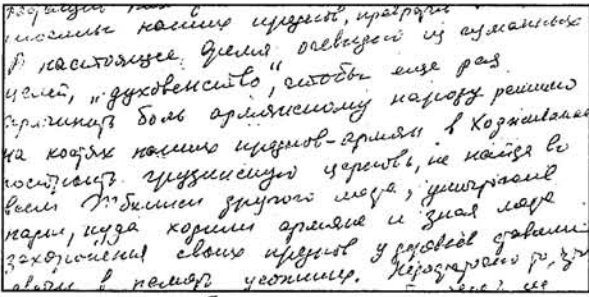 наших предков,
В настоящее время очевидно из гуманных
целей, „духовенство“, чтобы еще раз
причинить боль армянскому народу решило
на костях наших предков-армян в Ходживанке
построить грузинскую церковь, не найдя во
всем Тбилиси другого места,
парк, куда ходили армяне и зная места
захоронения своих предков у деревьев ставили
свечи в память усопших.